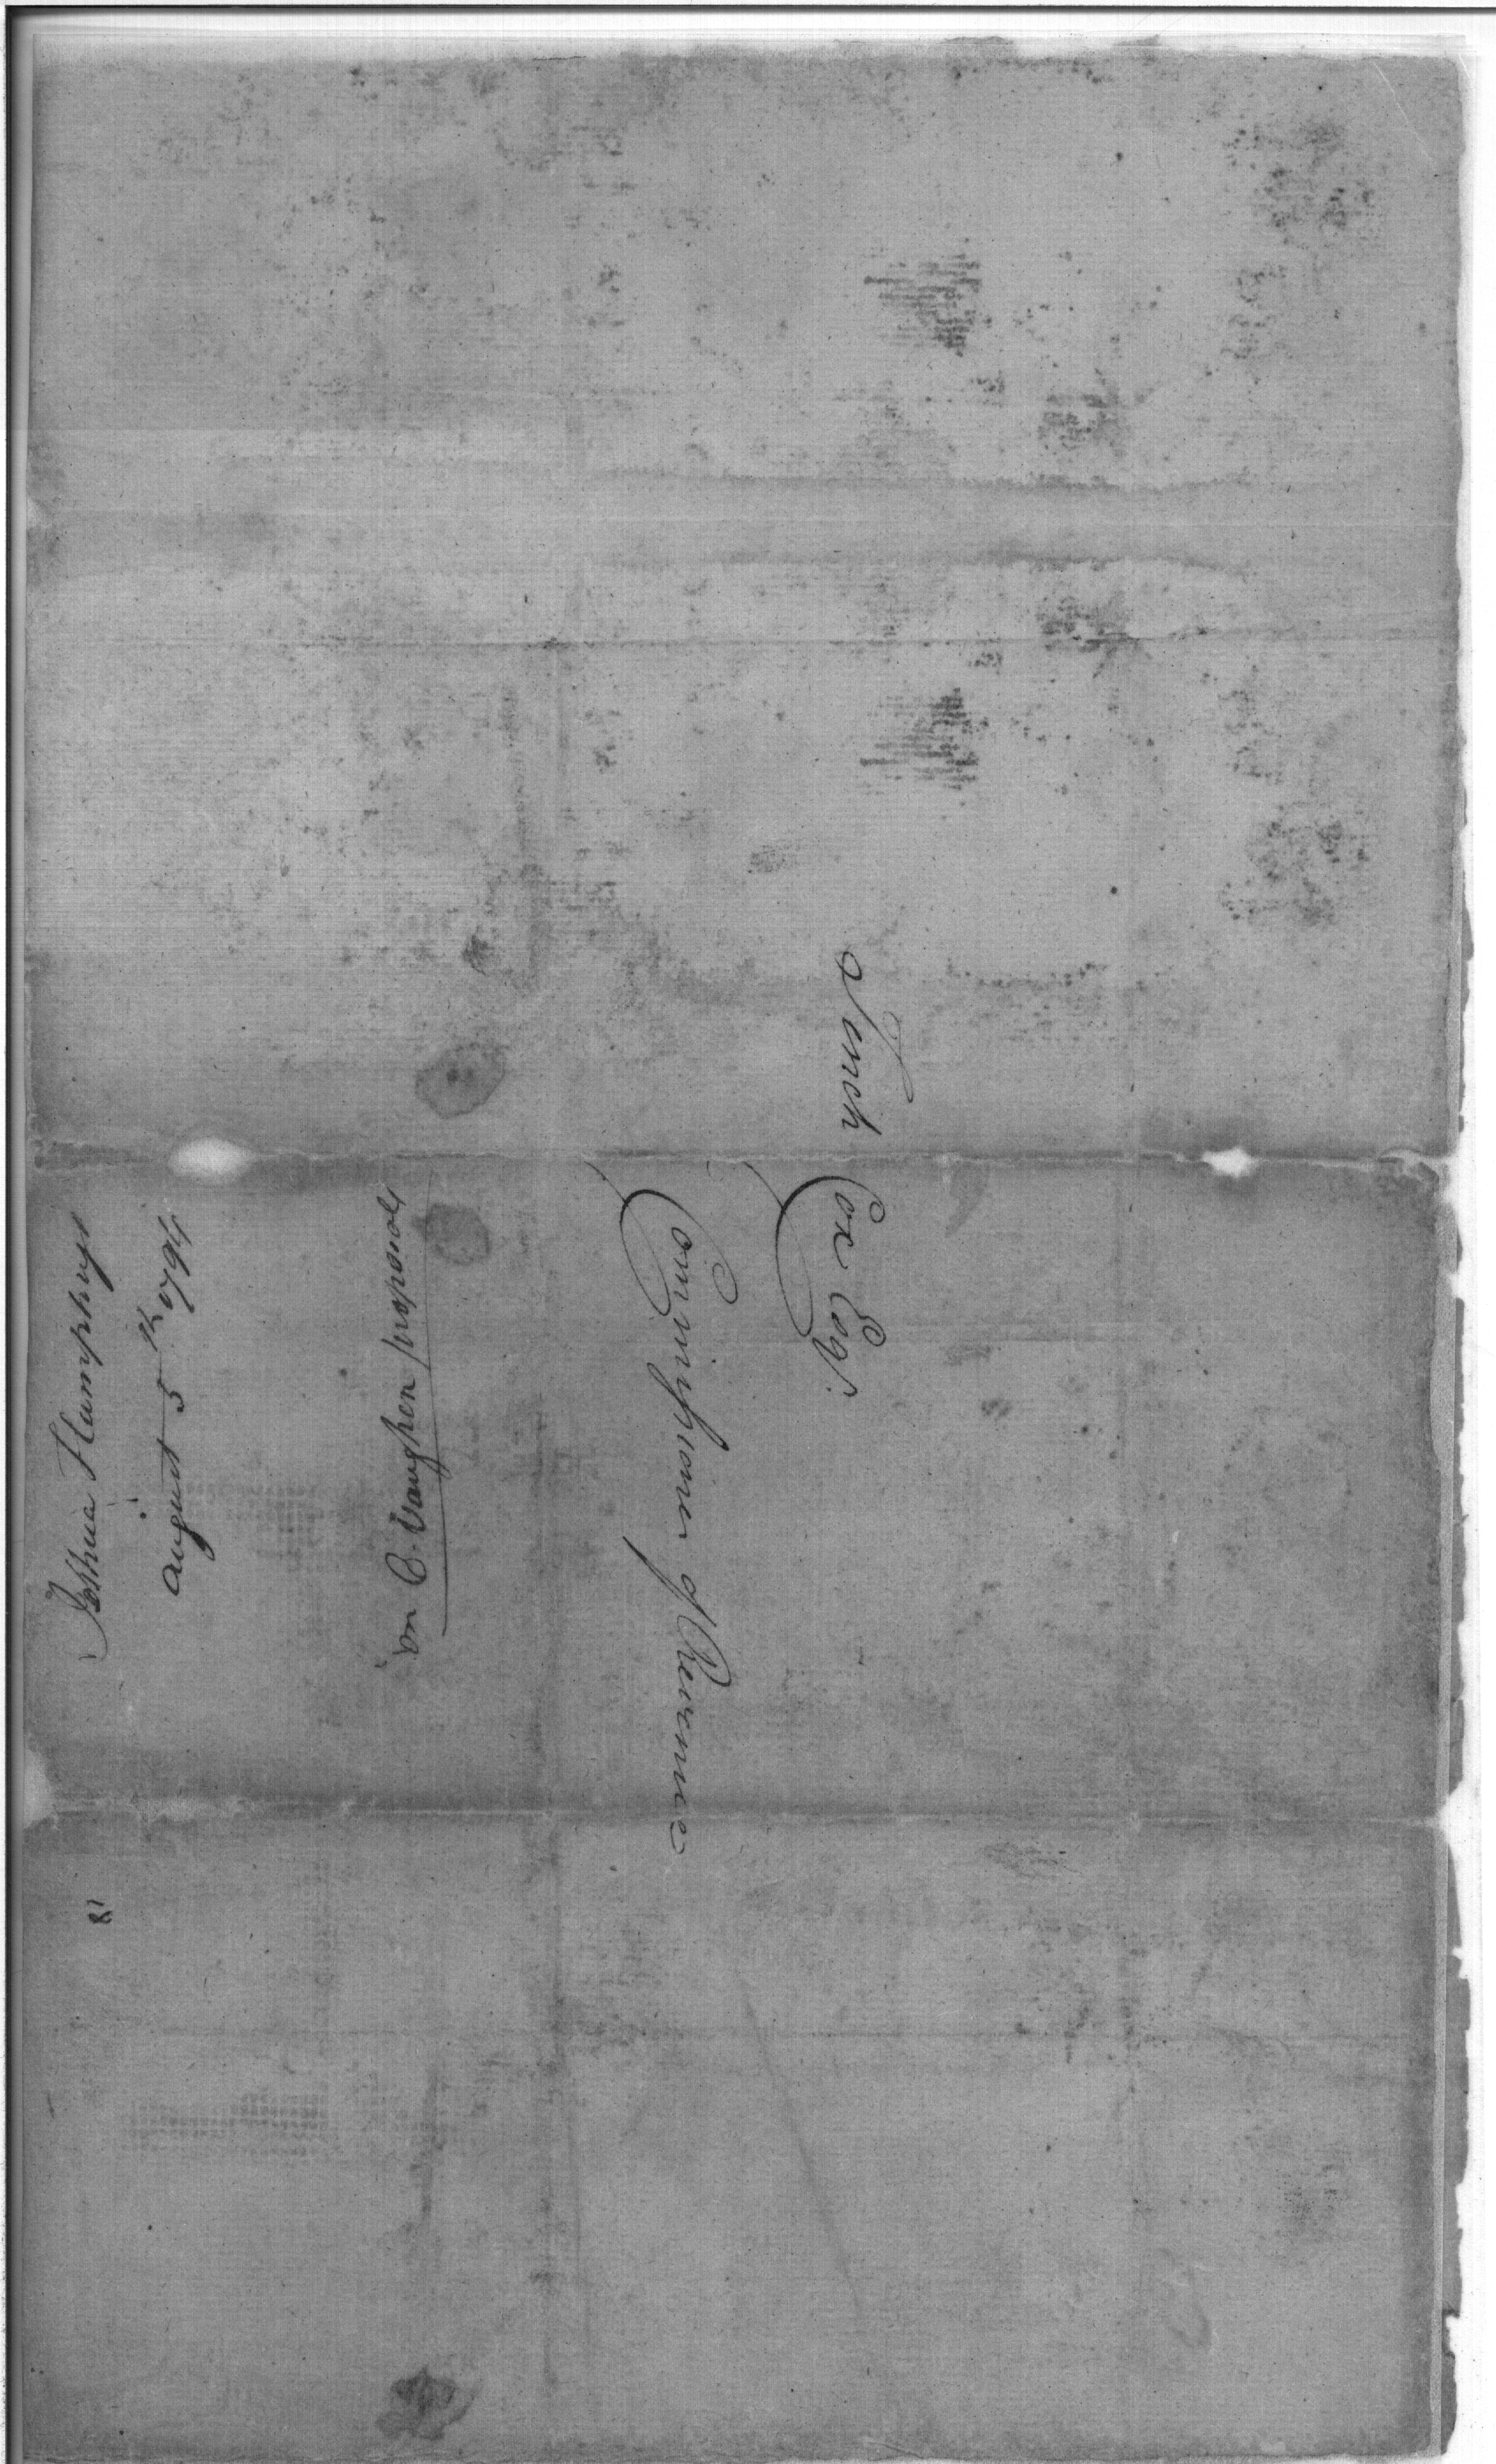 Joshua Humphreys
august 5th 1794
on C. Vaughen proposals
Tench Coxe Esqr.
Commissioner of Revenue